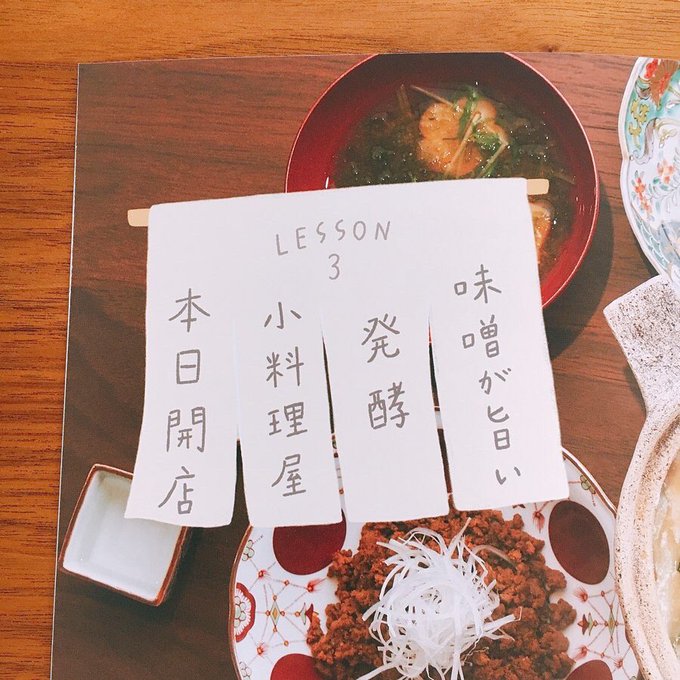 LESSON
3
味噌が旨い
発酵
小料理屋
本日開店